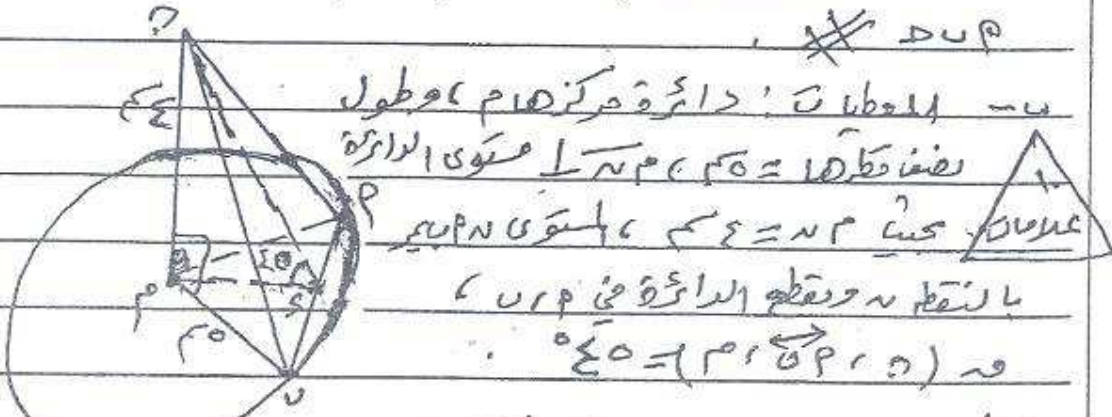 م ب هـ .
ب- المعطيات : دائرة مركزها م ، وطول
نصف قطرها = ٥سم ، م ن ⊥ مستوى الدائرة
بحيث م ن = ٤سم ، المستوى ن م ب يمر
بالنقطة ن ويقطع الدائرة في م ، ب ،
(ن ، م ب ، م) = ٤٥° .
١٠
علامات
ن
٤سم
م
٤٥
٥سم
ب